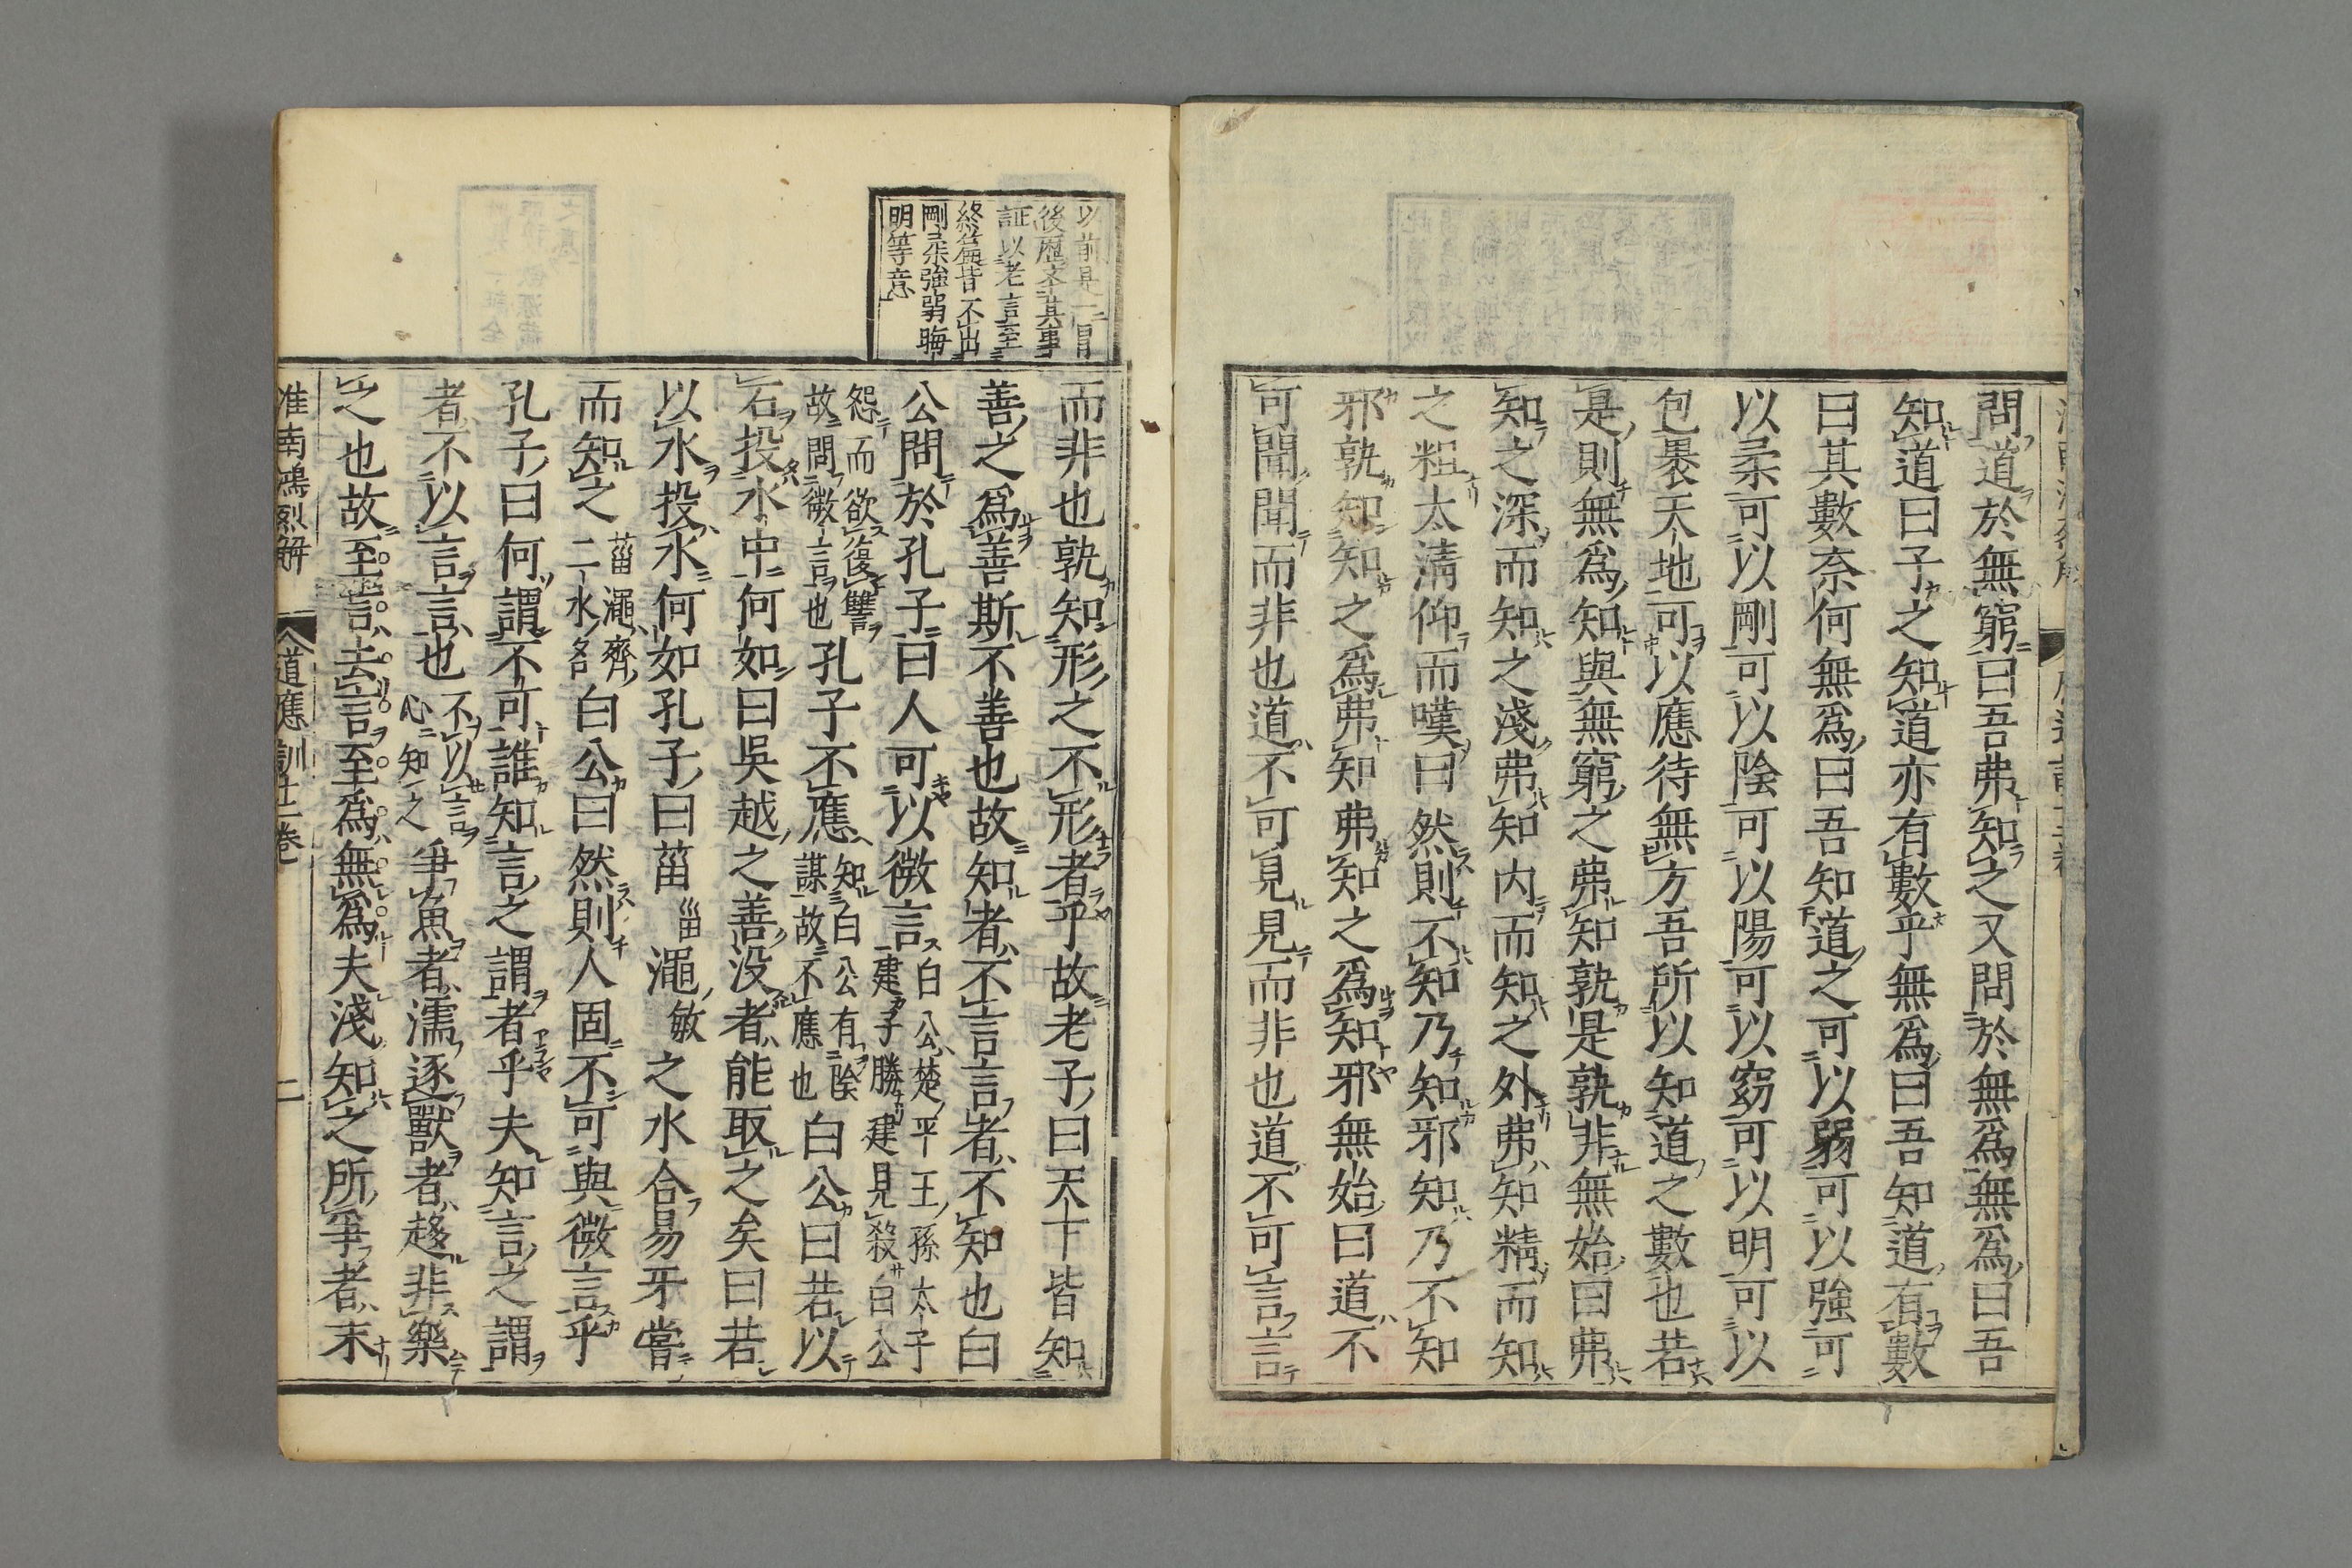 問道於無窮曰吾弗知之又問於無爲無爲曰吾
知道曰子之知道亦有數乎無爲曰吾知道有數
曰其數奈何無爲曰吾知道之可以弱可以強可
以柔可以剛可以陰可以陽可以窈可以明可以
包褁天地可以應待無方吾所以知道之數也若
是則無爲知與無窮之弗知孰是孰非無始曰弗
知之深而知之淺弗知内而知之外弗知精而知
之粗太清仰而嘆曰然則不知乃知邪知乃不知
邪孰知知之爲弗知弗知之爲知邪無始曰道不
可聞聞而非也道不可見見而非也道不可言言
以前是一冒
後歷文其事
証以老言至
終篇皆不出
剛柔強弱晦
明等意
而非也孰知形之不形者乎故老子曰天下皆知
善之爲善斯不善也故知者不言言者不知也白
公問於孔子曰人可以微言白公楚平王孫太子建子勝建見殺白公
怨而欲復讐故問微言也孔子不應知白公有陰謀故不應也白公曰若以
石投水中何如曰吳越之善没者能取之矣曰若
以水投水何如孔子曰菑甾澠敏之水合易牙嘗
而知之菑澠齊二水名白公曰然則人固不可與微言乎
孔子曰何謂不可誰知言之謂者乎夫知言之謂
者不以言言也不以言心知之爭魚者濡逐獸者趍非樂
之也故至言去言至爲無爲夫淺知之所爭者末
淮南鴻烈解 道應訓十二卷 二